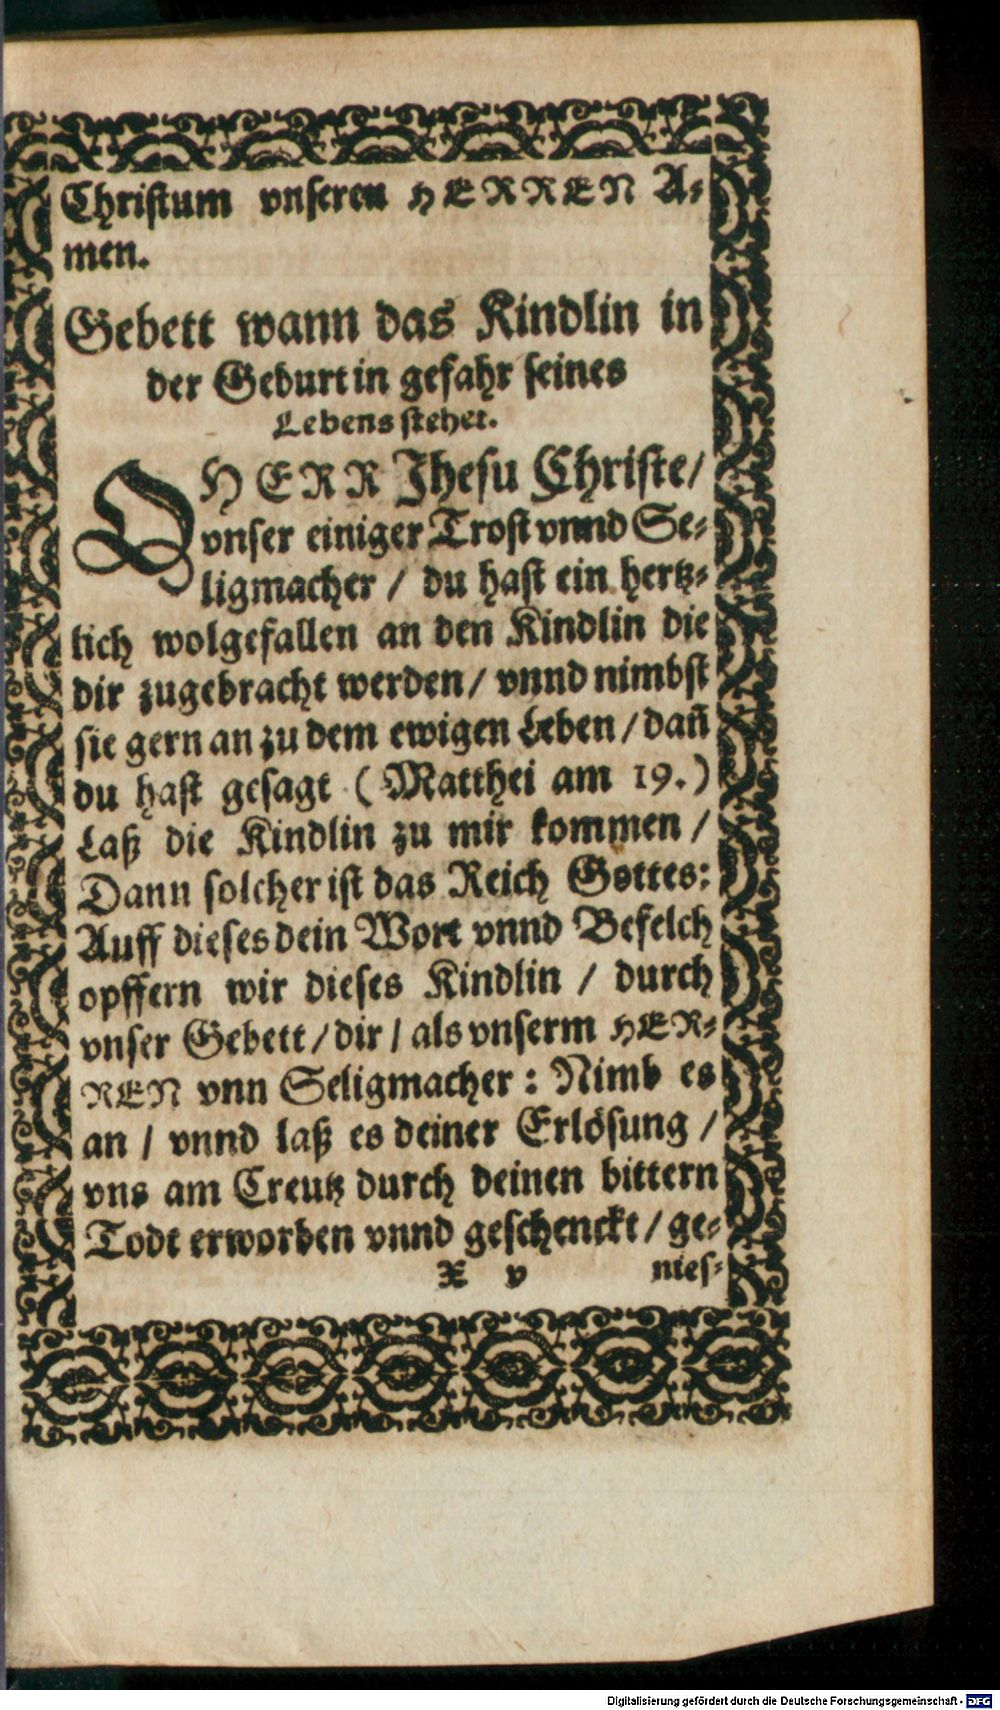 Christum vnseren HERREN A-
men.
Gebett wann das Kindlin in
der Geburt in gefahr seines
Lebens stehet.
O HERR Jhesu Christe/
vnser einiger Trost vnnd Se-
ligmacher / du hast ein hertz-
lich wolgefallen an den Kindlin die
dir zugebracht werden/ vnnd nimbst
sie gern an zu dem ewigen Leben/ dañ
du hast gesagt (Matthei am 19.)
Laß die Kindlin zu mir kommen /
Dann solcher ist das Reich Gottes:
Auff dieses dein Wort vnnd Befelch
opffern wir dieses Kindlin / durch
vnser Gebett/ dir / als vnserm HER-
REN vnn Seligmacher : Nimb es
an / vnnd laß es deiner Erlösung /
vns am Creutz durch deinen bittern
Todt erworben vnnd geschenckt/ ge-
X v nies-
Digitalisierung gefördert durch die Deutsche Forschungsgemeinschaft - DFG